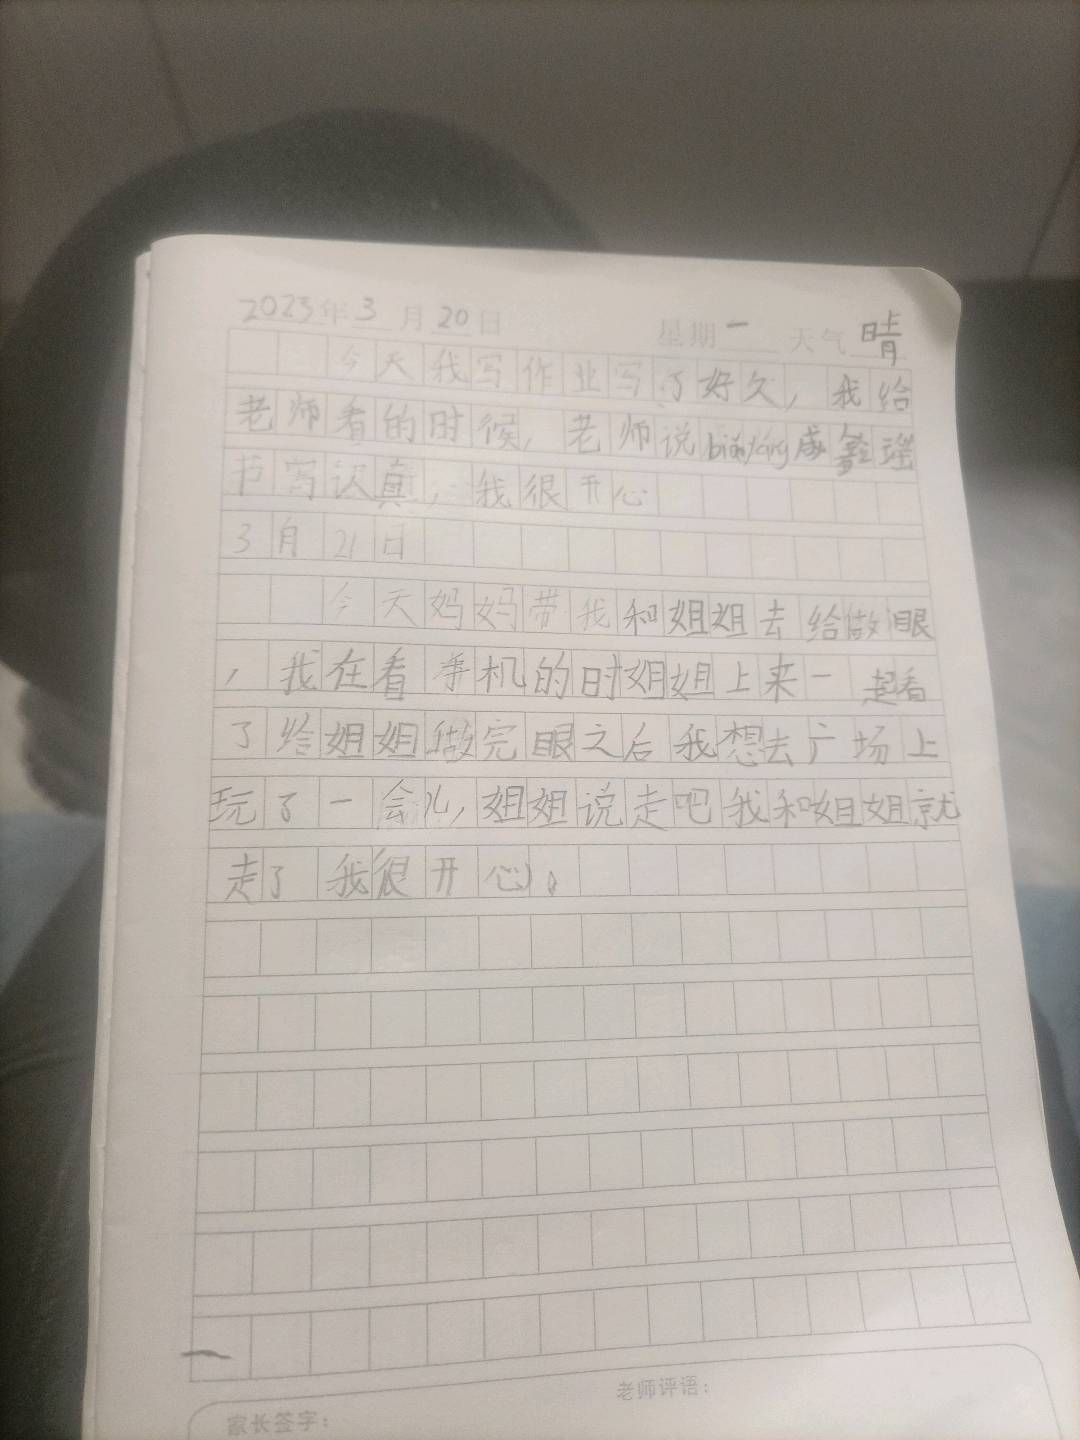 2023年3月20日 星期一 天气晴
今天我写作业写了好久，我给
老师看的时候，老师说biǎoyáng成鑫瑶
书写认真，我很开心
3月21日
今天妈妈带我和姐姐去给做眼
，我在看手机的时姐姐上来一起看
了给姐姐做完眼之后我想去广场上
玩了一会儿，姐姐说走吧我和姐姐就
走了我很开心。
老师评语：
家长签字：